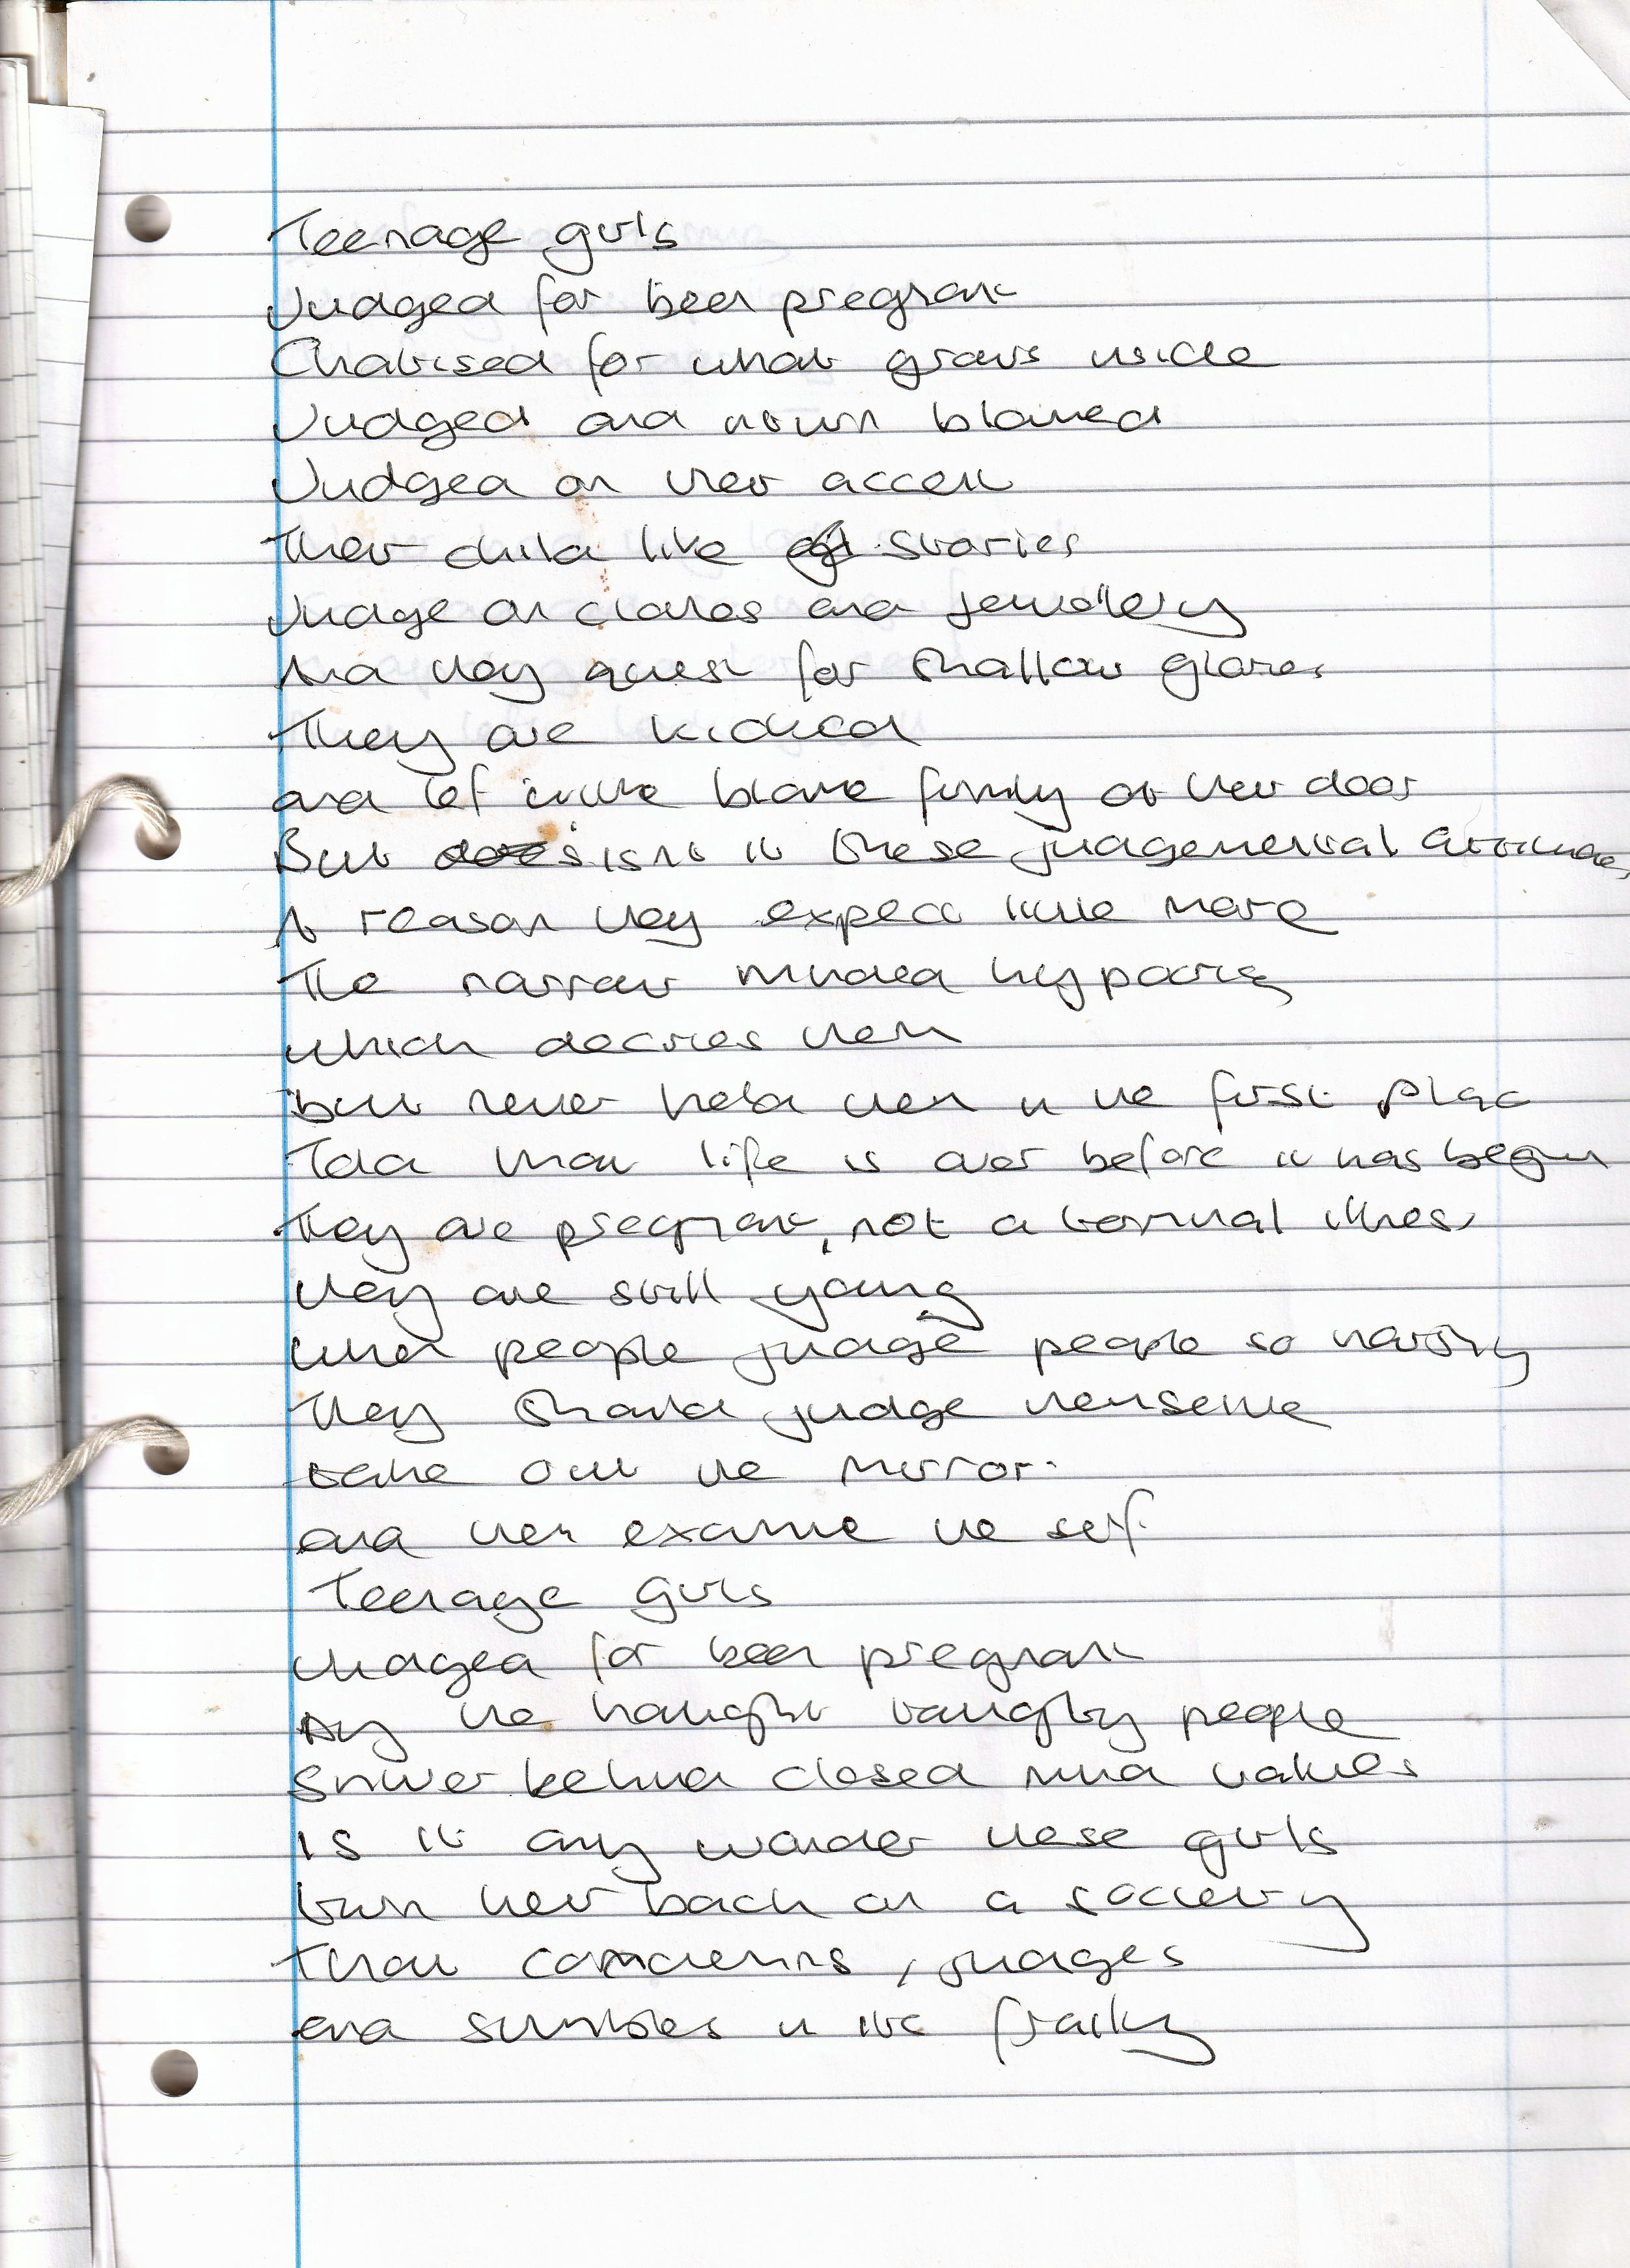 Teenage girls
Judged for been pregnant
Chatised for what grows inside
Judged and blamed
Judged on their accent
Their child like stories
Judge on clothes and jewellery
And they quest for shallow glories
They are kicked
and let blame firmly at their door
But isnt it these judgemental attitudes
A reason they expect little more
The narrow minded hypocrisy
which decries them
but never held them in the first place
Told that life is over before it has begun
They are pregnant, not a terminal illness
they are still young
when people judge people so harshly
They should judge themselve
take out the mirror.
and then examine the self.
Teenage girls
Judged for been pregnant
By the haught taughty people
behind closed mind values
Is it any wonder these girls
turn their back on a society
That condemns, judges
and stumbles in its frailty